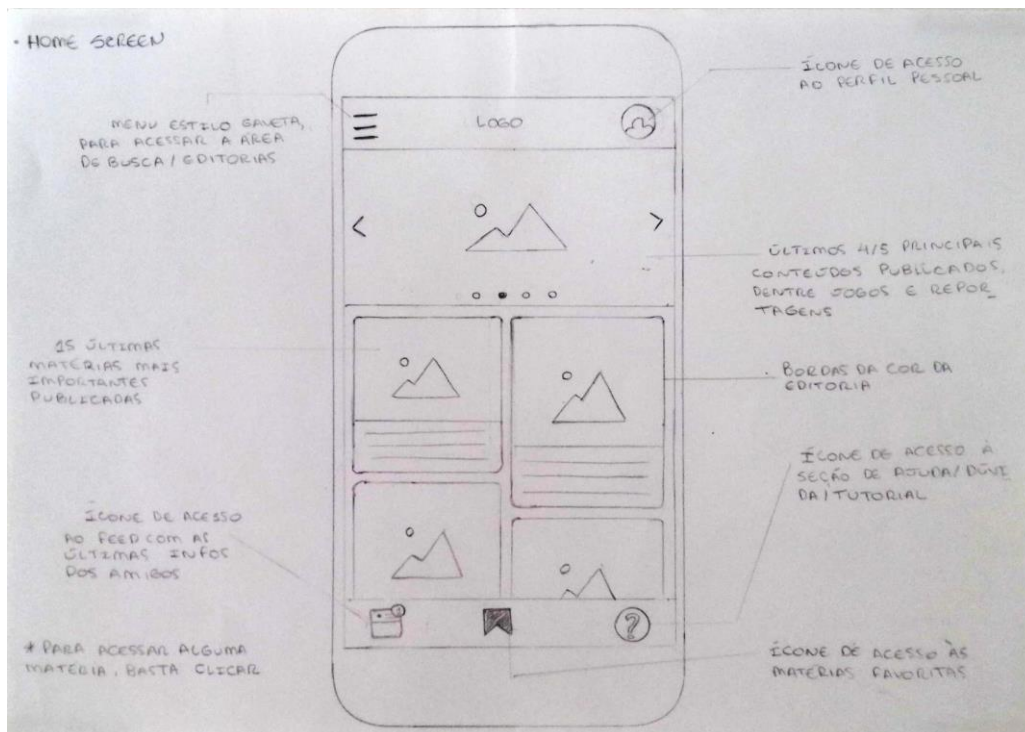 • HOME SCREEN
ÍCONE DE ACESSO
AO PERFIL PESSOAL
MENU ESTILO GAVETA,
PARA ACESSAR A ÁREA
DE BUSCA / EDITORIAS
LOGO
ÚLTIMOS 4/5 PRINCIPAIS
CONTEÚDOS PUBLICADOS,
DENTRE JOGOS E REPOR_
TAGENS
15 ÚLTIMAS
MATÉRIAS MAIS
IMPORTANTES
PUBLICADAS
BORDAS DA COR DA
EDITORIA
ÍCONE DE ACESSO À
SEÇÃO DE AJUDA/ DÚVI
DA / TUTORIAL
ÍCONE DE ACESSO
AO FEED COM AS
ÚLTIMAS INFOS
DOS AMIGOS
?
* PARA ACESSAR ALGUMA
MATÉRIA, BASTA CLICAR
ÍCONE DE ACESSO ÀS
MATÉRIAS FAVORITAS